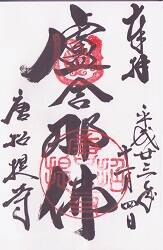 奉拝
平成廿三年
十一月四日
盧舎那佛
唐招提寺